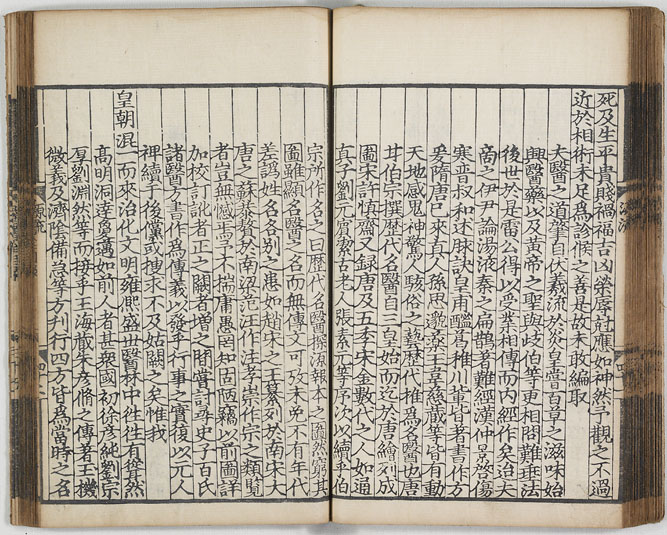 死及生平貴賤禍福吉凶榮辱剋應如神然予觀之不過
近於相術未足爲診候之善是故未敢編取
大醫之道肇自伏羲流於炎皇嘗百草之滋味始
興醫藥以及黃帝之聖與歧伯等更相問難垂法
後世於是雷公得以受業相傳而内經作矣迨夫
商之伊尹論湯液秦之扁鵲著難經漢仲景啓傷
寒晉叔和述脉訣皇甫謐葛稚川輩皆著書作方
爰隋唐巳來真人孫思邈藥王韋慈藏等皆有動
天地感鬼神驚人駭俗之藝歷代推爲名醫也唐
甘伯宗撰歷代名醫自三皇始而迄於唐繪列成
圖宋許慎齋又録唐及五季宋金數代之人如通
真子劉元賓潔古老人張素元等序次以續乎伯
宗所作名之曰歷代名醫探源報本之圖然窮其
圖雖顯名醫之名而無傳文可攷未免不有年代
差譌姓名各别之患如趙宋之王纂列於南宋大
唐之蘇泰螯於南詔范汪作注孝崇作宗之類覽
者豈無憾焉予不揣庸愚罔知固陋竊以前圖詳
加校訂訛者正之闕者增之閒嘗討尋史子百氏
諸醫方書作爲傳義以發乎行事之實復以元人
裨續于後儻或搜求不及姑闕之矣惟我
皇朝混一而來治化文明雍熙盛世醫林中徃徃有聳然
高明洞達夐邁如前人者甚衆國初徐彦純劉宗
厚劉淵然等而接乎王海藏朱彦脩之傳著玉機
微義及濟隂備急等方刋行四方皆爲當時之名